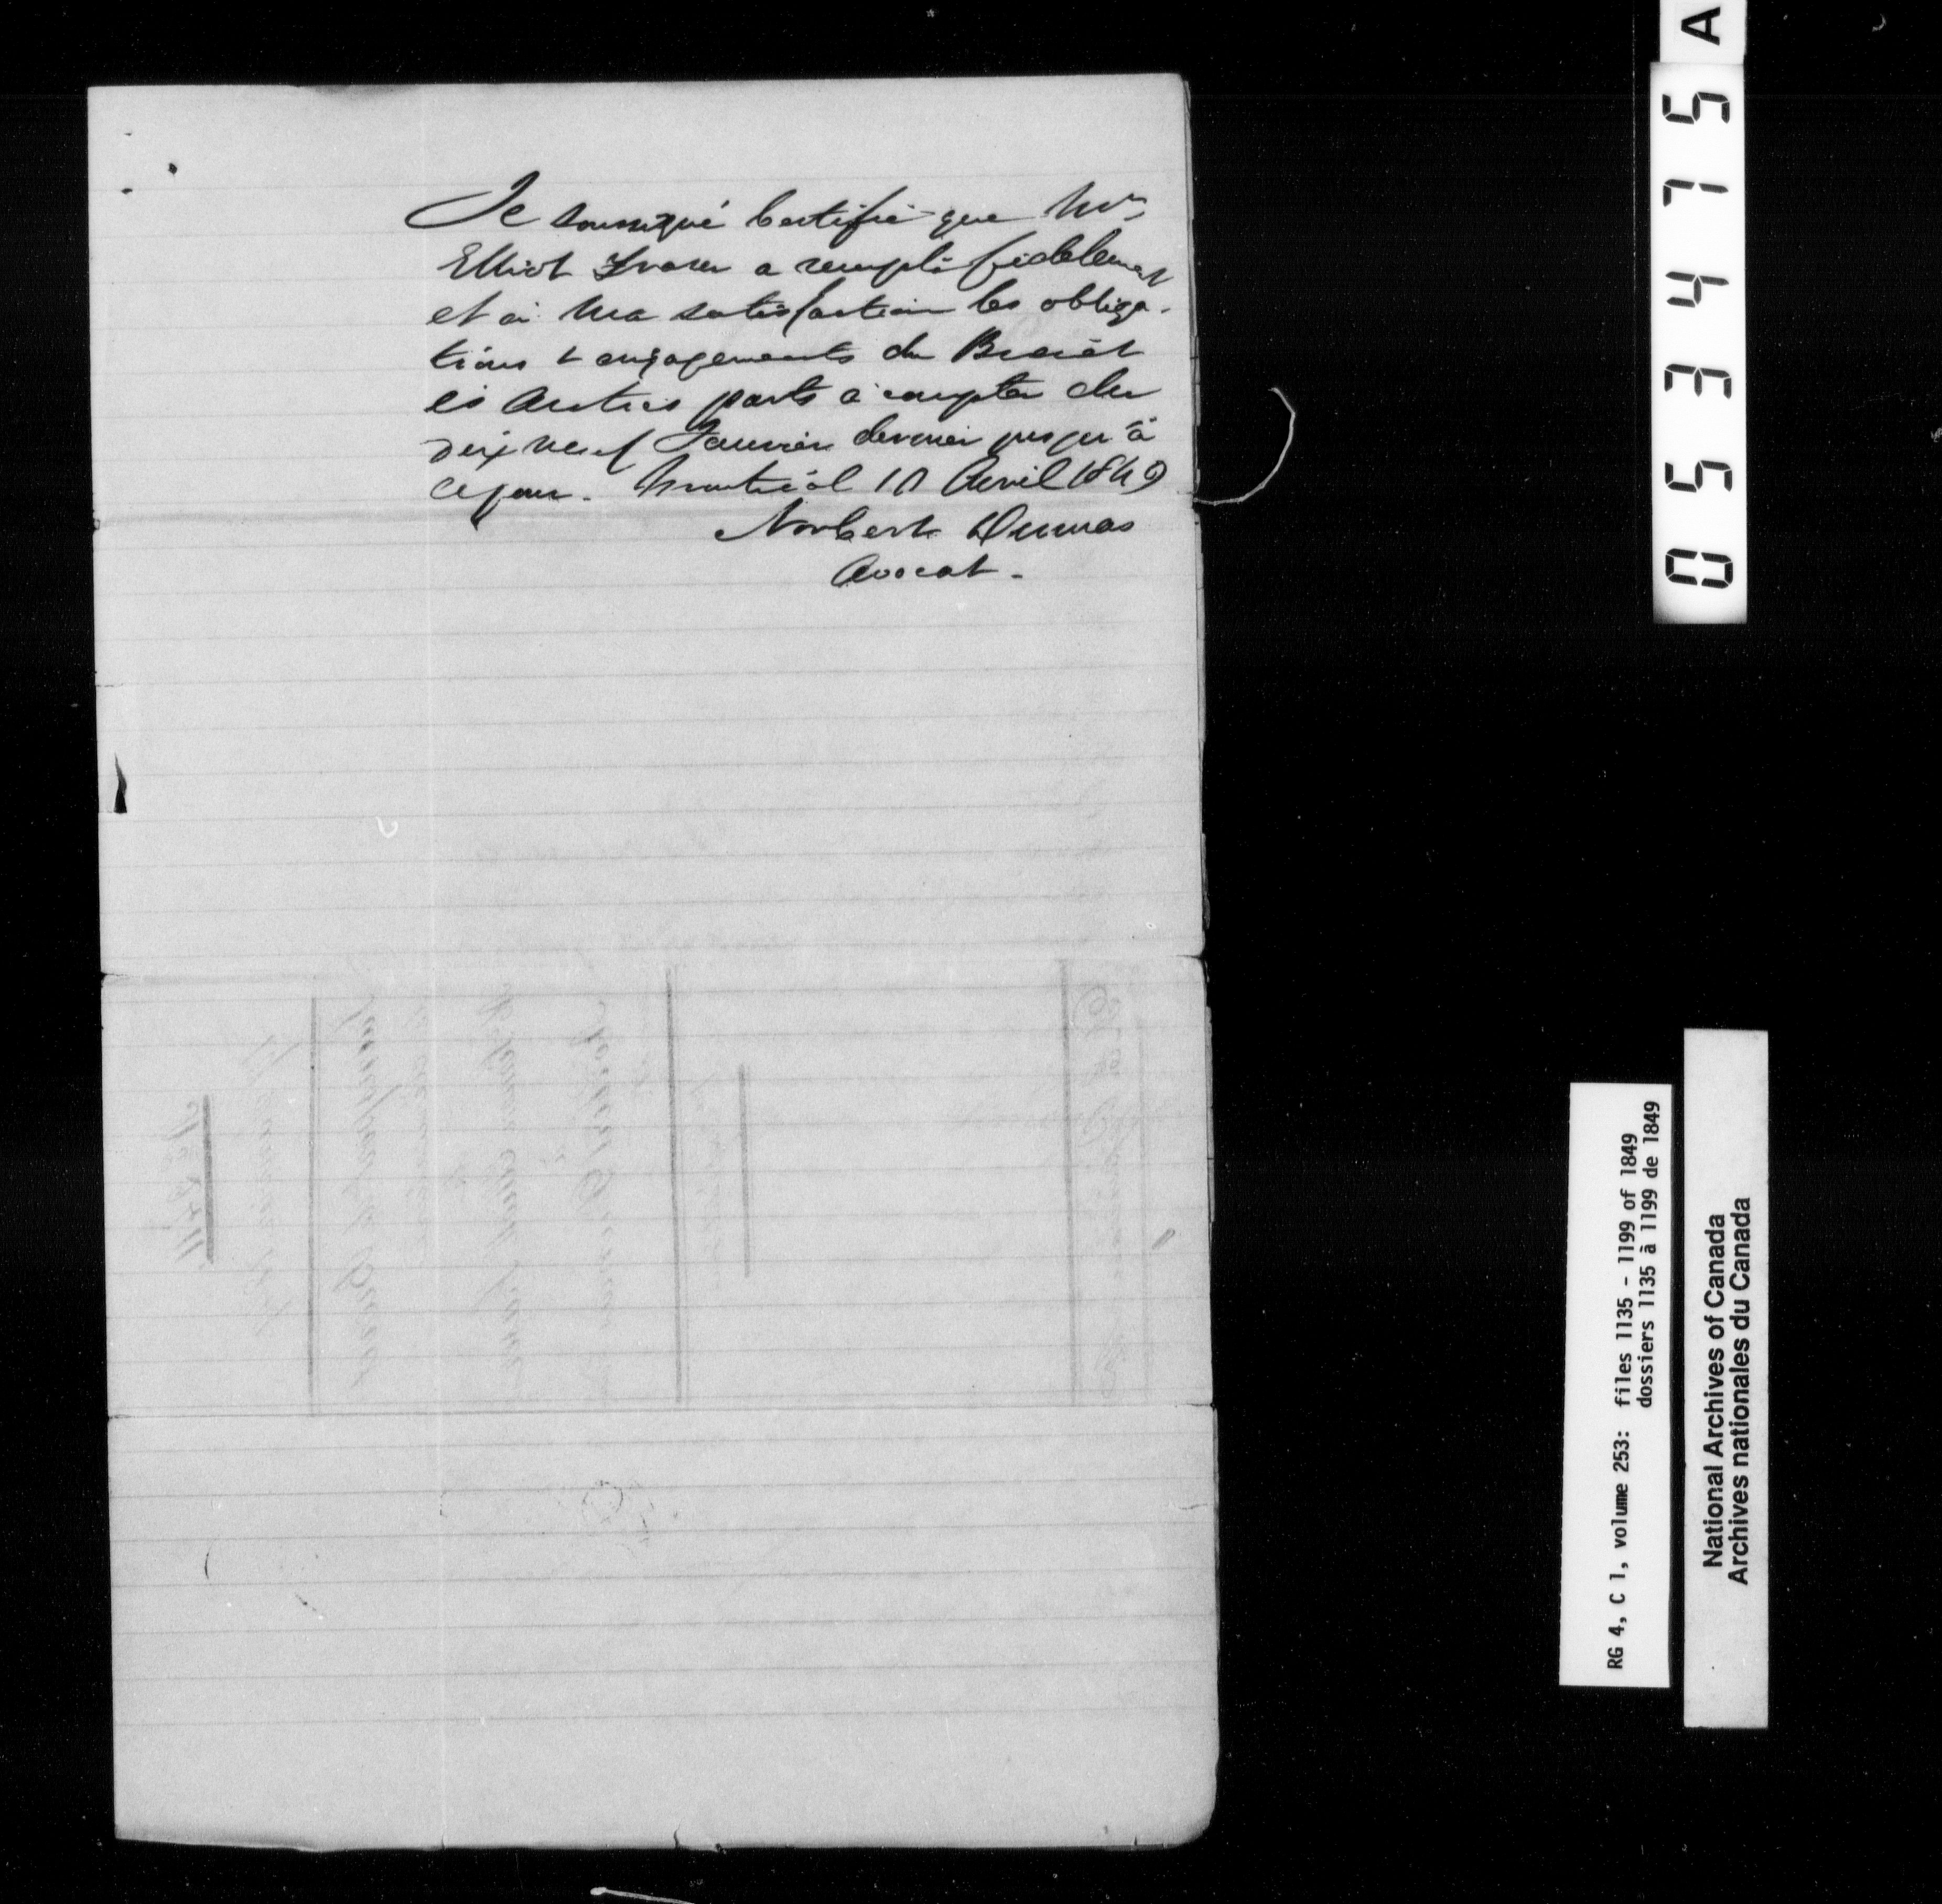 Je soussigné Certifie que Mr
Elliot Fraser a rempli fidelement
et a ma satisfaction les obliga-
tions & engagements du Brevêt
es autres parts a compter du
dix neuf Janvier dernier jusqu'à
ce jour. Montréal 10 Avril 1849
Norbert Dumas
Avocat.
053475 A
RG 4, C 1, volume 253: files 1135 - 1199 of 1849
dossiers 1135 à 1199 de 1849
National Archives of Canada
Archives nationales du Canada